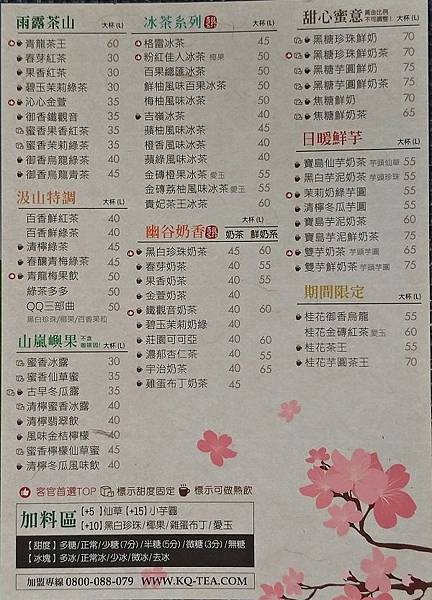 雨露茶山 大杯(L)
青龍茶王 60
春芽紅茶 30
果香紅茶 30
碧玉茉莉綠茶 30
沁心金萱 35
御香鐵觀音 35
蜜香果香紅茶 35
蜜香茉莉綠茶 35
御香烏龍綠茶 40
御香烏龍青茶 45
汲山特調 大杯(L)
百香鮮紅茶 40
百香鮮綠茶 40
清檸綠茶 45
春釀青梅綠茶 45
青龍梅果飲 50
綠茶多多 50
QQ三部曲 50
黑白珍珠/椰果/百香果粒
山嵐嶼果 不含咖啡因! 大杯(L)
蜜香冰露 30
蜜香仙草蜜 35
古早冬瓜露 35
清檸蜜香冰露 40
清檸翡翠飲 40
風味金桔檸檬 40
蜜香檸檬仙草蜜 45
清檸冬瓜風味飲 40
冰茶系列 大杯(L)
格雷冰茶 45
粉紅佳人冰茶 椰果 50
百果總匯冰茶 50
鮮柚風味百果冰茶 50
梅柚風味冰茶 50
吉嶺冰茶 40
蘋柚風味冰茶 45
橙香風味冰茶 40
蘋綠風味冰茶 40
金磚橙果冰茶 愛玉 55
金磚荔柚風味冰茶 愛玉 55
貴妃茶王冰茶 60
大杯(L)
幽谷奶香 奶茶 鮮奶系
黑白珍珠奶茶 45 60
春芽奶茶 40 55
果香奶茶 40 55
金萱奶茶 40
鐵觀音奶茶 40 60
碧玉茉莉奶綠 40
莊園可可亞 40 60
濃郁杏仁茶 40 55
宇治奶茶 40 65
雞蛋布丁奶茶 45
甜心蜜意 黃金比例不可調整! 大杯(L)
黑糖珍珠鮮奶 70
黑糖珍珠鮮奶茶 70
黑糖芋圓鮮奶 75
黑糖芋圓鮮奶茶 75
焦糖鮮奶 70
焦糖鮮奶茶 65
日暖鮮芋 大杯(L)
寶島仙芋奶茶 芋頭仙草 55
黑白芋泥奶茶 芋頭珍珠 55
茉莉奶綠芋圓 55
清檸冬瓜芋圓 55
寶島芋泥奶茶 60
寶島芋泥鮮奶茶 75
雙芋奶茶 芋頭芋圓 65
雙芋鮮奶茶 芋頭芋圓 75
期間限定 大杯(L)
桂花御香烏龍 55
桂花金磚紅茶 愛玉 60
桂花茶王 55
桂花芋圓茶王 70
客官首選TOP 標示甜度固定 標示可做熱飲
加料區
【+5】仙草【+15】小芋圓
【+10】黑白珍珠/椰果/雞蛋布丁/愛玉
【甜度】多糖/正常/少糖(7分)/半糖(5分)/微糖(3分)/無糖
【冰塊】多冰/正常冰/少冰/微冰/去冰
加盟專線 0800-088-079 WWW.KQ-TEA.COM